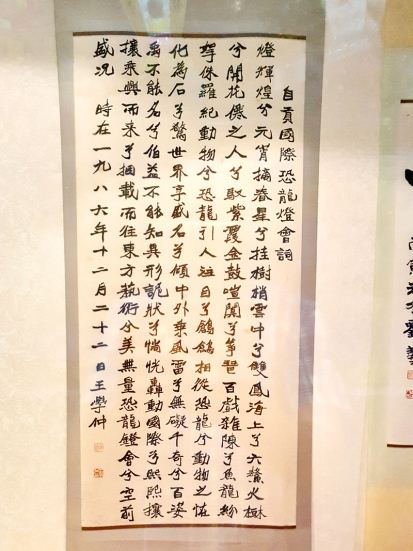 自貢國際恐龍燈會詞
燈輝煌兮元宵摘春星兮挂樹梢雲中兮雙鳳海上兮六鰲火樹
兮開花僊之人兮馭紫霞金鼓喧闐兮箏琶百戲雜陳兮魚龍紛
拏侏羅紀動物兮恐龍引人注目兮鶼鶼相從恐龍兮動物之怪
化為石兮驚世界享盛名兮傾中外乘風雷兮無礙千奇兮百姿
禹不能名兮伯益不能知異形詭狀兮惝恍轟動國際兮熙熙攘
攘乘興而來兮捆載而往東方藝術兮美無量恐龍鐙會兮空前
盛况 時在一九八六年十二月二十二日王學仲